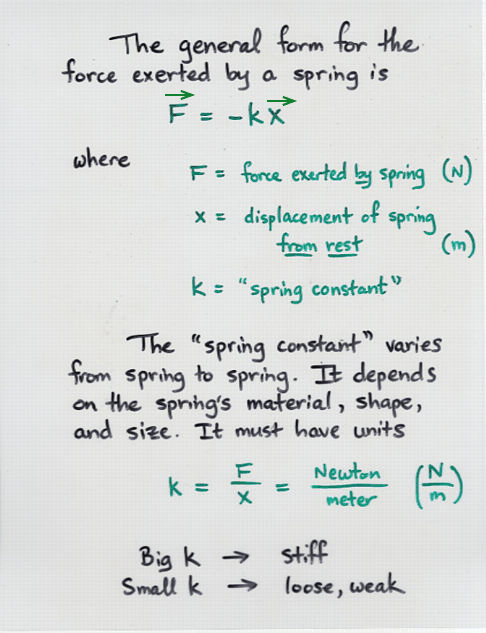 The general form for the
force exerted by a spring is
F = -kx
where
F = force exerted by spring (N)
x = displacement of spring
from rest (m)
k = "spring constant"
The "spring constant" varies
from spring to spring. It depends
on the spring's material, shape,
and size. It must have units
k = F/x = Newton/meter (N/m)
Big k → stiff
Small k → loose, weak